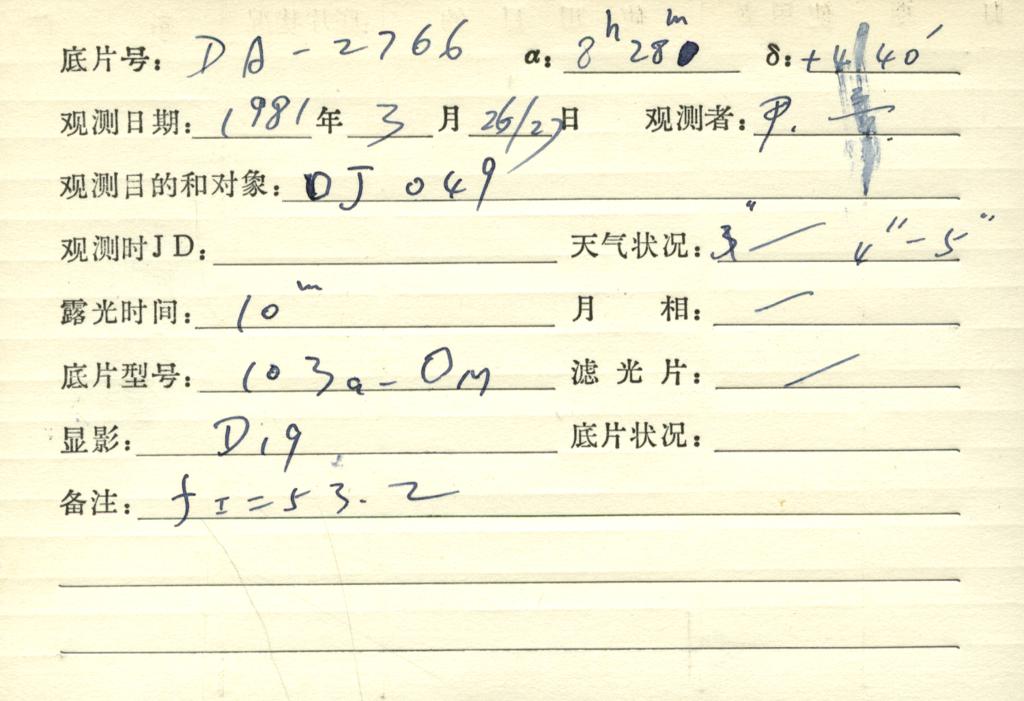 底片号: DA-2766 α: 8h 28m0 δ: +41 40′
观测日期: 1981 年 3 月 26/27 日 观测者:
观测目的和对象: OJ 049
观测时JD: 天气状况: 3″ — 4″-5″
露光时间: 10m 月 相: /
底片型号: 103a-OM 滤 光 片: /
显影: D19 底片状况:
备注: fI=53.2